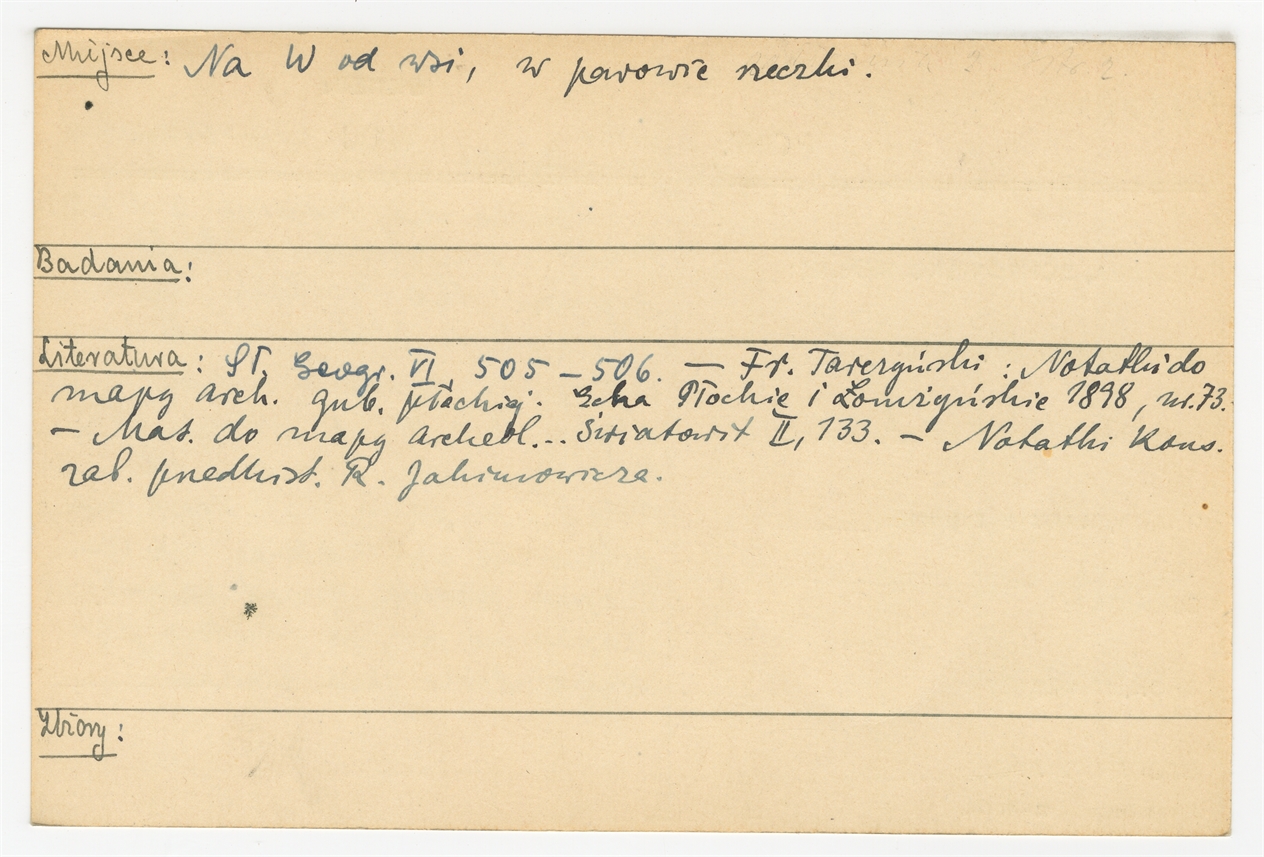 Miejsce: Na W od wsi, w parowie rzeczki.
Badania:
Literatura: Sł. Geogr. VI 505–506. — Fr. Tarczyński: Notatki do
mapy arch. gub. płockiej. Echa Płockie i Łomżyńskie 1898, nr. 73.
— Mat. do mapy archeol... Światowit II, 133. — Notatki Kons.
zab. przedhist. R. Jakimowicza.
Zbiory: